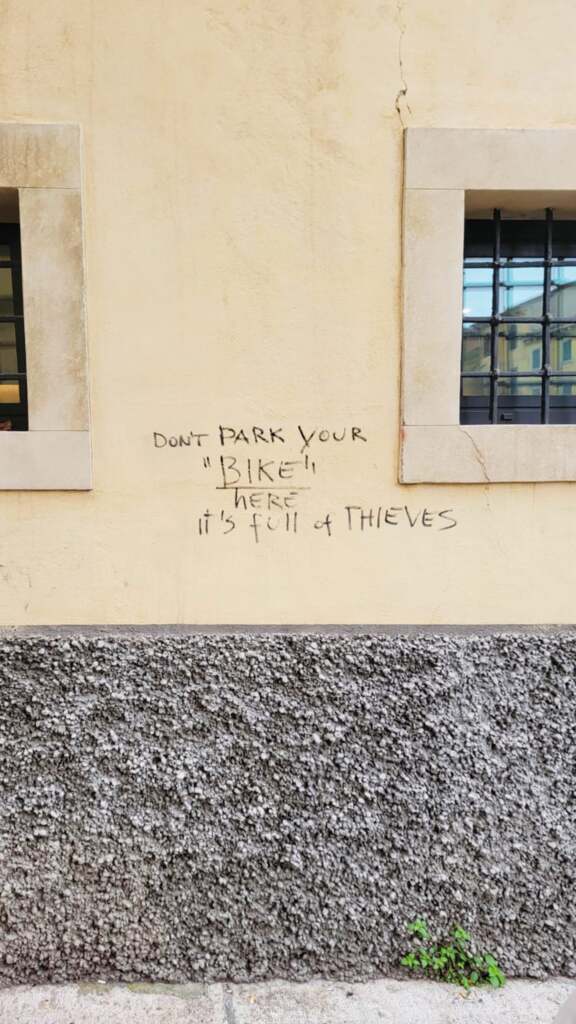 DON'T PARK YOUR
"BIKE"
hERE
it's full of THIEVES